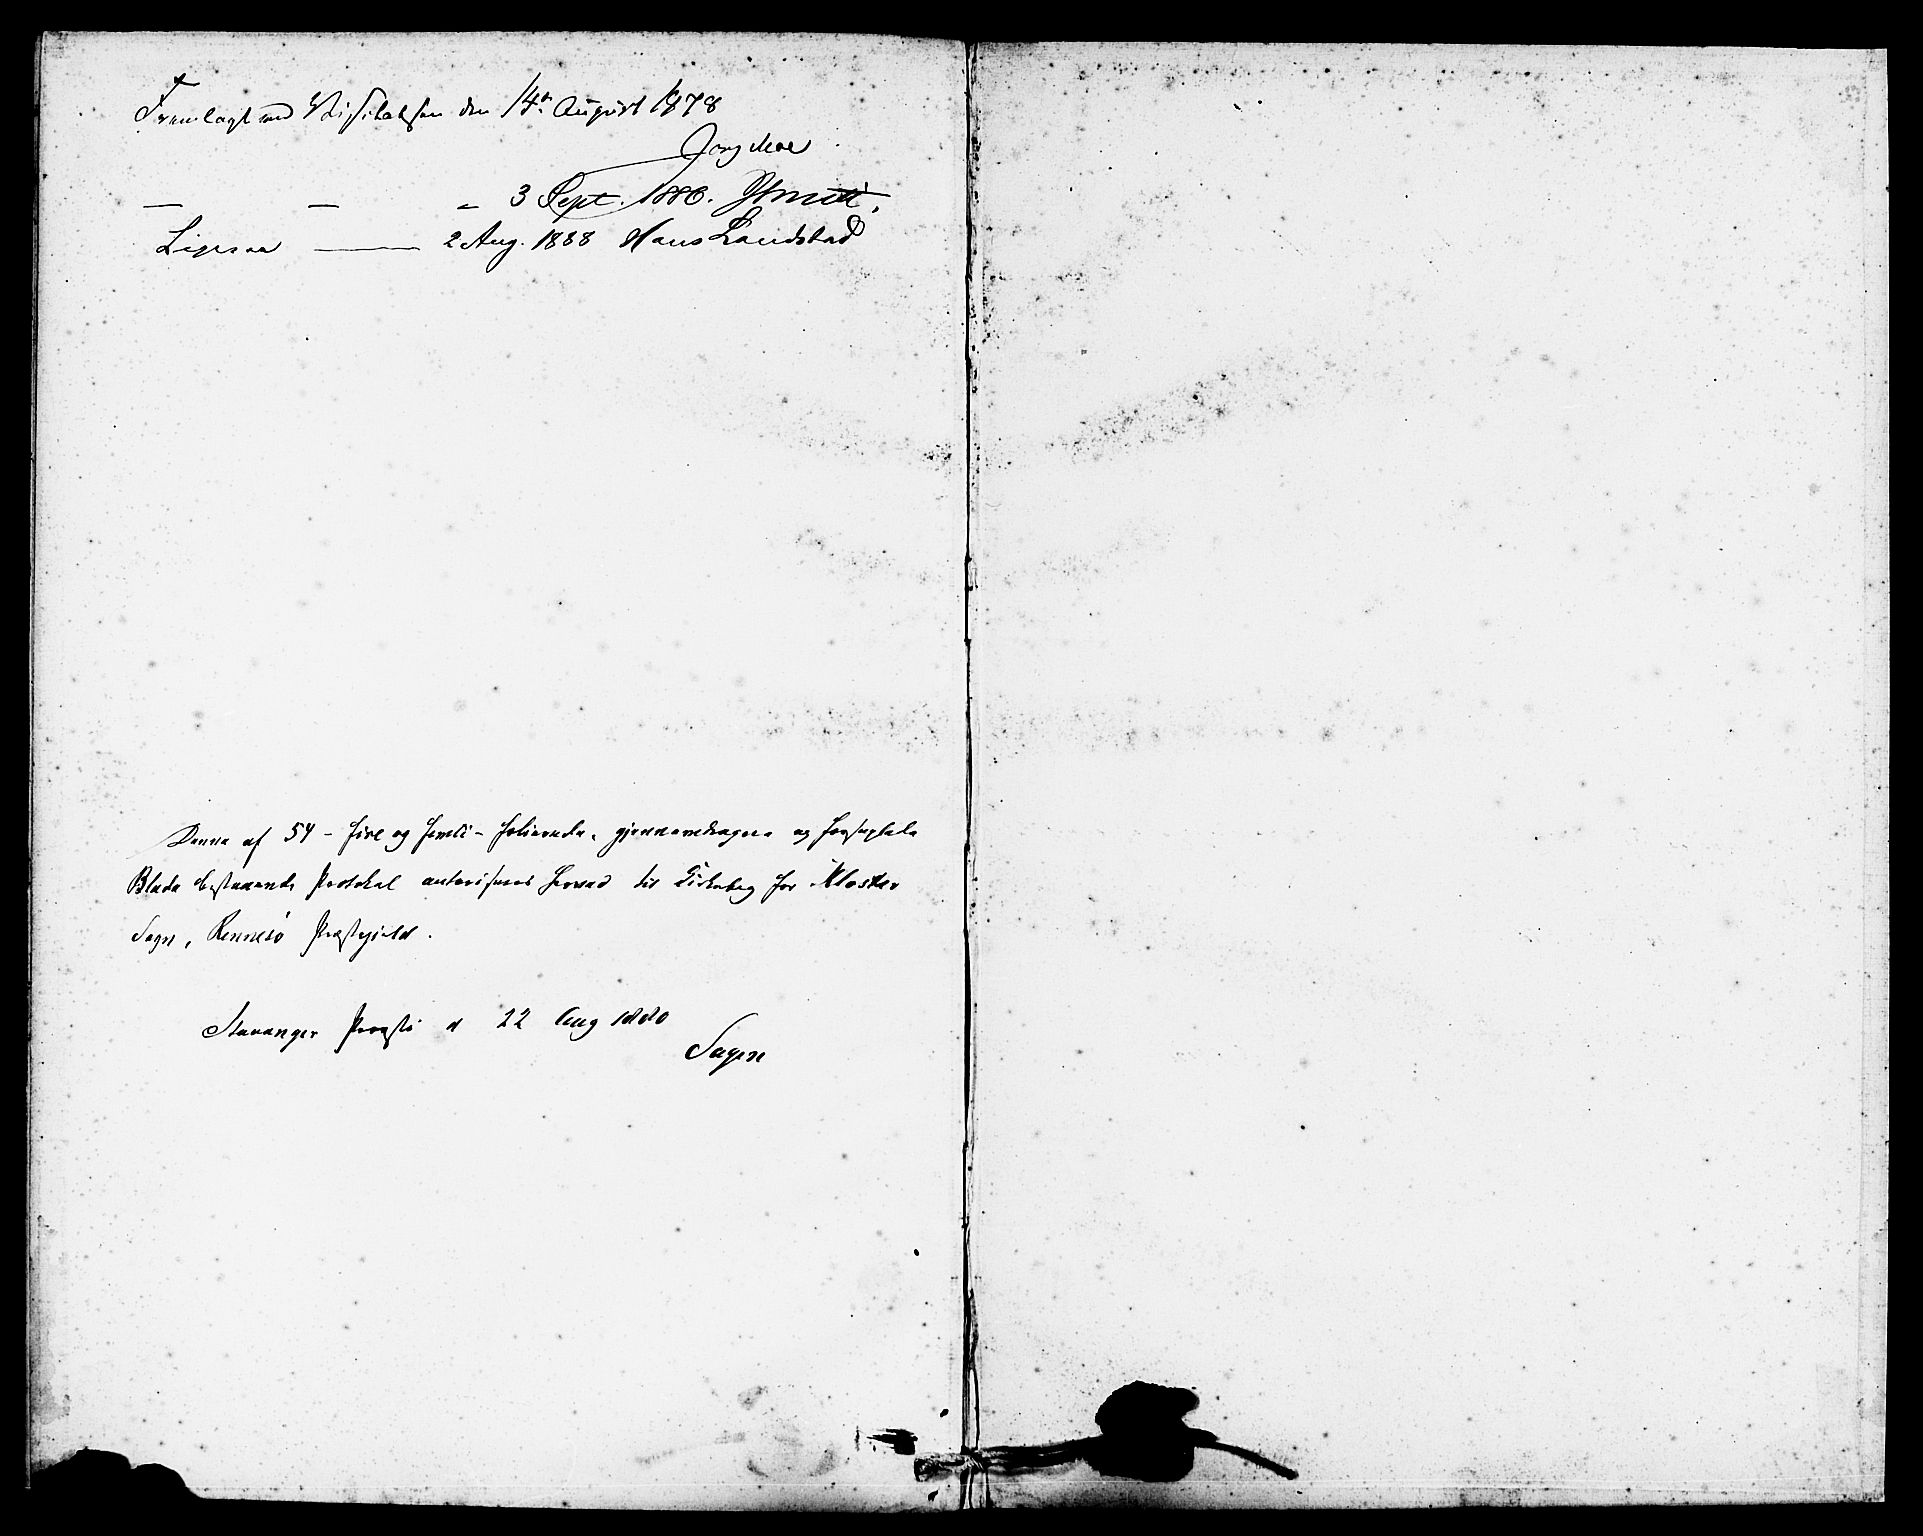 Fremlagt ved Visitatsen den 14de August 1878
Jørg Moe
— — „ 3 Sept. 1880.
Ligesaa —— 2 Aug. 1888 Hans Landstad
Denne af 54 – fire og femti – folierede, gjennemdragne og forseglede
Blade bestaaende Protokol autoriseres herved til Kirkebog for Kloster
Sogn, Rennesö Præstegjeld.
Stavanger Provsti d 22 Aug 1880
Sagen